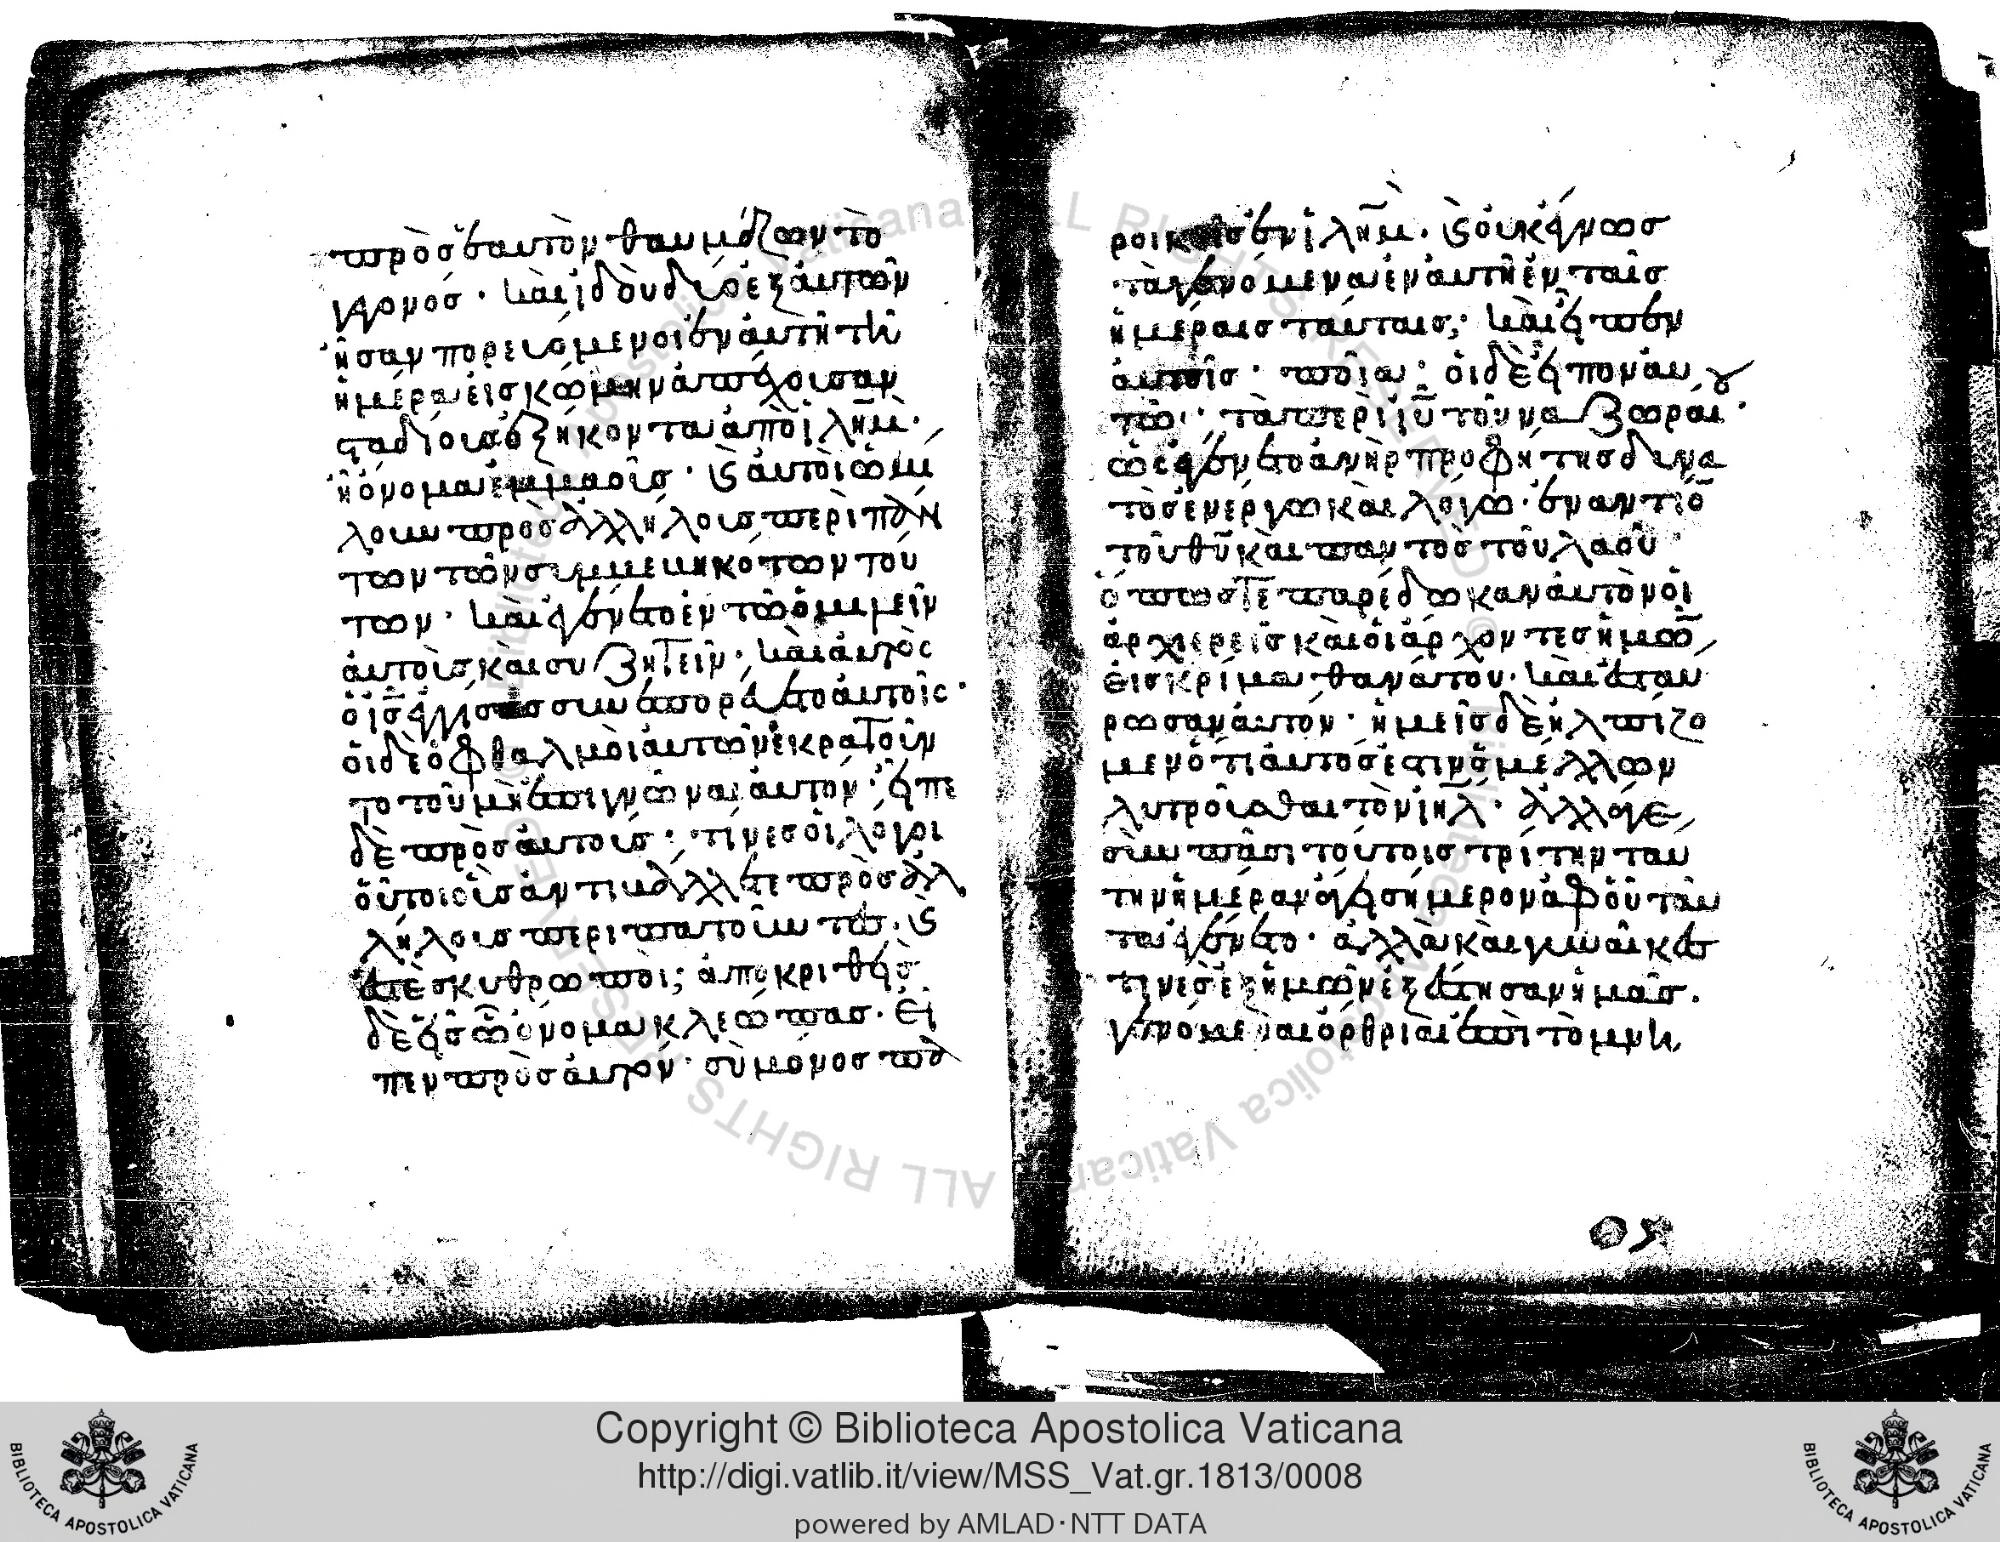 πρὸς ἑαυτὸν θαυμάζων τὸ
γεγονός · καὶ ἰδοὺ δύο ἐξ αὐτῶν
ἦσαν πορευόμενοι ἐν αὐτῆ τῆ
ἡμέρα εἰς κώμην ἀπέχουσαν
σταδίους ἑξήκοντα ἀπὸ ἰλῆμ ·
ἧ ὄνομα ἐμμαοῦς · καὶ αὐτοὶ ὡμί
λουν πρὸς ἀλλήλους περὶ πάν
των τῶν συμβεβηκότων τού
των · καὶ ἐγένετο ἐν τῶ ὁμιλεῖν
αὐτοὺς καὶ συζητεῖν · καὶ αὐτὸς
ὁ ις ἐγγίσας συνεπορεύετο αὐτοῖς ·
οἱ δὲ ὀφθαλμοὶ αὐτῶν ἐκρατοῦν
το τοῦ μὴ ἐπιγνῶναι αὐτόν · εἶπε
δὲ πρὸς αὐτούς · τίνες οἱ λόγοι
οὗτοι οὓς ἀντιβάλλετε πρὸς ἀλ
λήλους περιπατοῦντες · καὶ
ἐστὲ σκυθρωποί; ἀποκριθεὶς
δὲ εἷς ὧ ὄνομα κλεώπας · εἶ
πεν πρὸς αὐτόν · σὺ μόνος πα
ροικεῖς ἐν ἰλῆμ · καὶ οὐκ ἔγνως
τὰ γενόμενα ἐν αὐτῆ ἐν ταῖς
ἡμέραις ταύταις; καὶ εἶπεν
αὐτοῖς · ποῖα · οἱ δὲ εἶπον αυ
τῶ · τὰ περὶ ιυ τοῦ ναζωραί
ου ὃς ἐγένετο ἀνὴρ προφήτης δυνα
τὸς ἐν ἔργω καὶ λόγω · ἐναντίο
τοῦ θυ καὶ παντὸς τοῦ λαοῦ ·
ὅπως τε παρέδωκαν αὐτὸν οἱ
ἀρχιερεῖς καὶ οἱ ἄρχοντες ἡμῶ
εἰς κρίμα θανάτου · καὶ ἐσταύ
ρωσαν αὐτόν · ἡμεῖς δὲ ἠλπίζο
μεν ὅτι αὐτός ἐστιν ὁ μέλλων
λυτροῦσθαι τὸν ιηλ · ἀλλά γε
σὺν πᾶσι τούτοις τρίτην ταύ
την ἡμέραν ἄγει σήμερον ἀφ' οὗ ταῦ
τα ἐγένετο · ἀλλὰ καὶ γυναῖκες
τινὲς ἐξ ἡμῶν ἐξέστησαν ἡμᾶς ·
γενόμεναι ὄρθριαι ἐπὶ τὸ μνη
Copyright © Biblioteca Apostolica Vaticana
http://digi.vatlib.it/view/MSS_Vat.gr.1813/0008
powered by AMLAD·NTT DATA
BIBLIOTECA APOSTOLICA VATICANA
BIBLIOTECA APOSTOLICA VATICANA